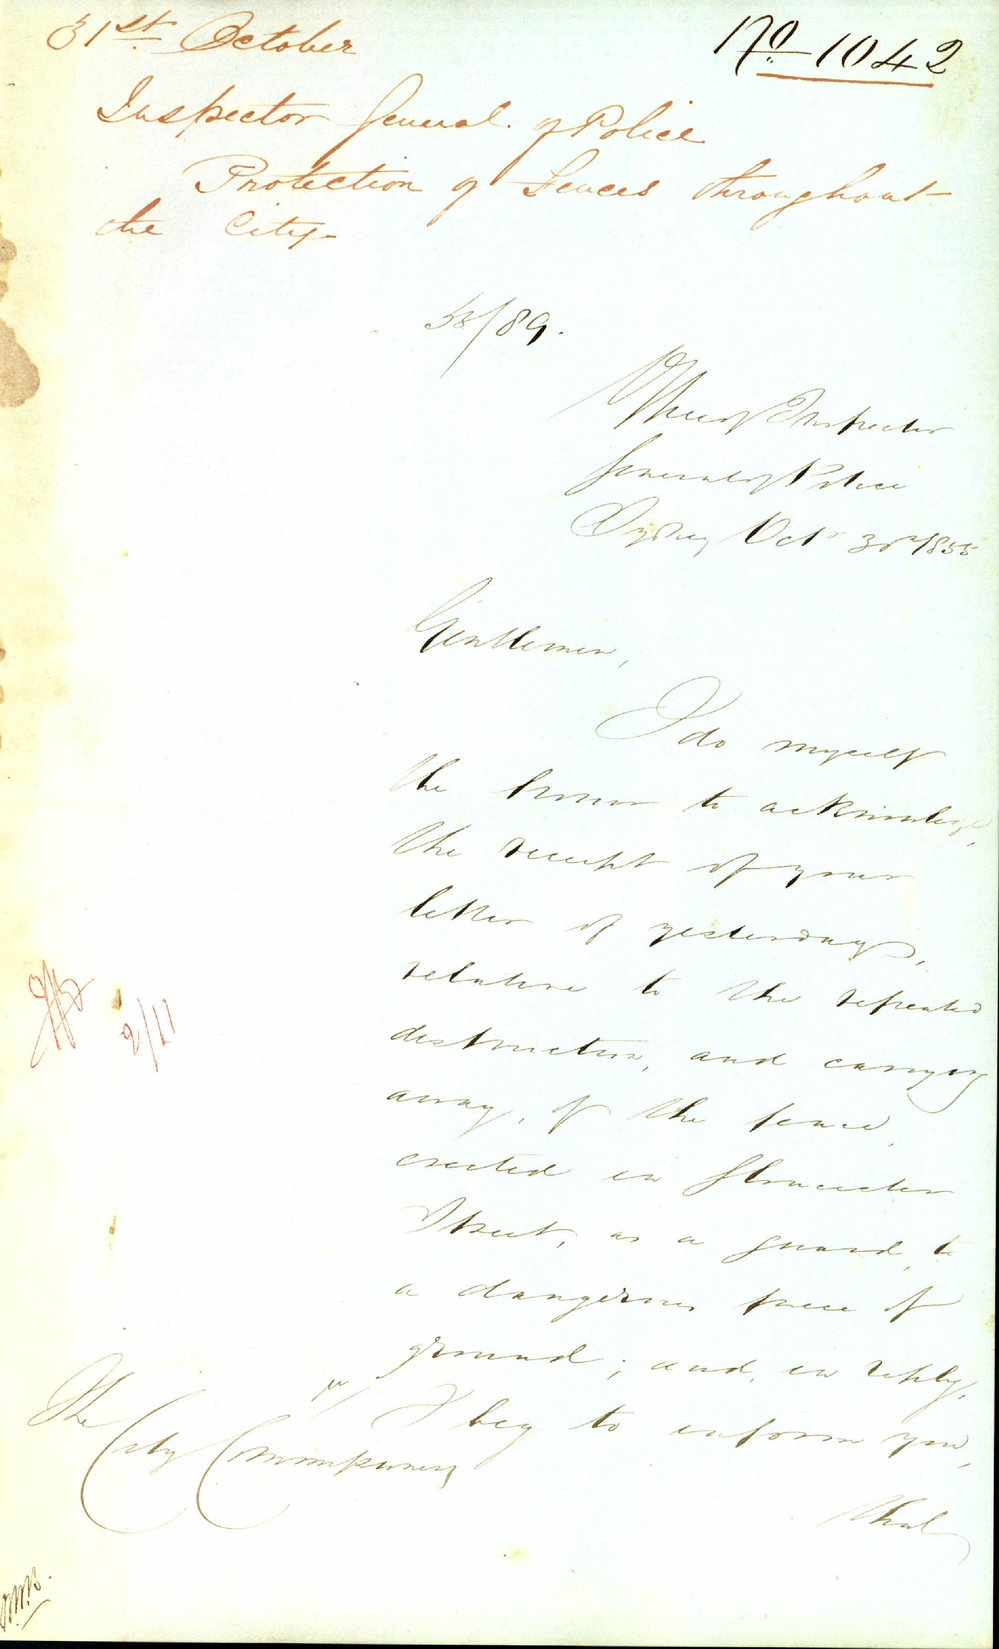 31st October
No 1042
Inspector General of Police
Protection of Fences throughout
the City
55/89.
Office of Inspector
General of Police
Sydney Octr 30th 1855
Gentlemen,
I do myself
the honor to acknowledge,
the receipt of your
letter of yesterdays,
relative to the repeated
destruction, and carrying
away, of the fence,
erected in Gloucester
Street, as a guard, to
a dangerous piece of
ground; and, in reply,
I beg to inform you,
that
The
City Commissioners
2/11